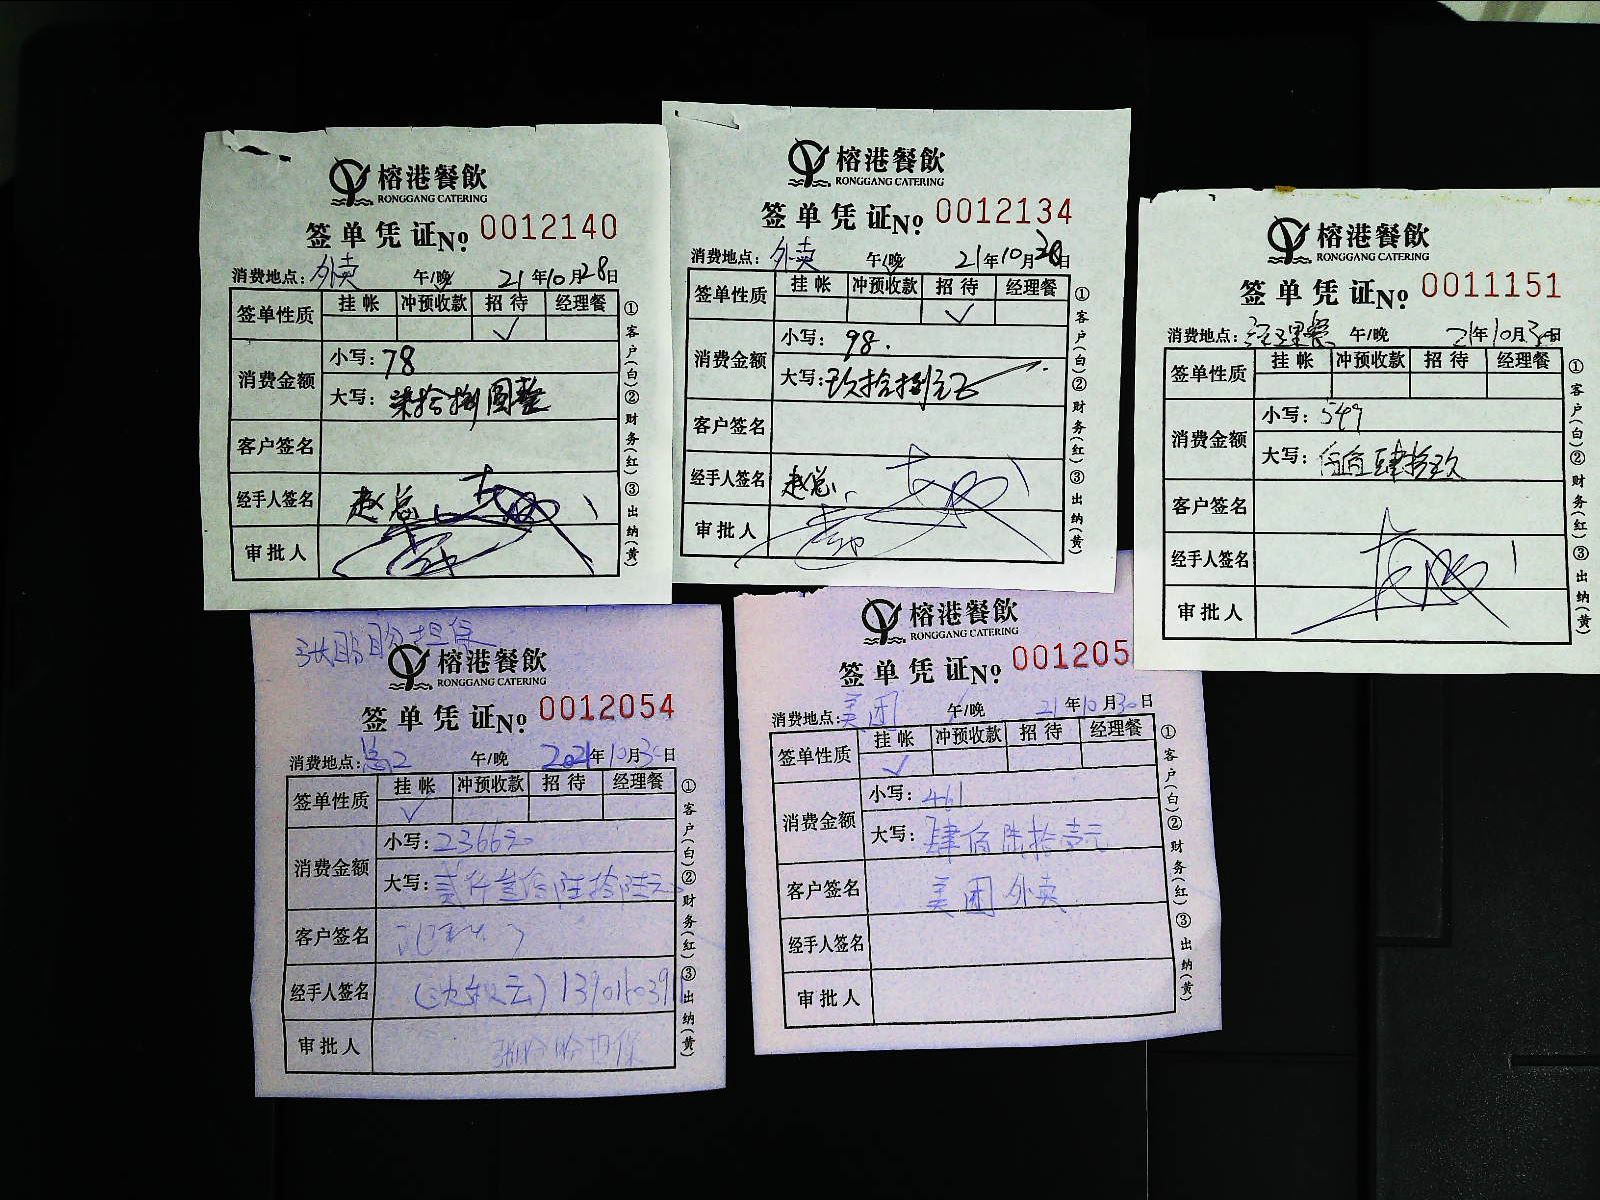 榕港餐飲
RONGGANG CATERING
签单凭证No 0012140
消费地点：外卖 午/晚 21年10月28日
签单性质 挂帐 冲预收款 招待 经理餐
✓
消费金额 小写：78
大写：柒拾捌圆整
客户签名
经手人签名 赵总
审批人
①客户(白)②财务(红)③出纳(黄)
榕港餐飲
RONGGANG CATERING
签单凭证No 0012134
消费地点：外卖 午/晚 21年10月日
签单性质 挂帐 冲预收款 招待 经理餐
✓
消费金额 小写：98.
大写：玖拾捌元正
客户签名
经手人签名 赵总
审批人
①客户(白)②财务(红)③出纳(黄)
榕港餐飲
RONGGANG CATERING
签单凭证No 0011151
消费地点：经理餐 午/晚 21年10月30日
签单性质 挂帐 冲预收款 招待 经理餐
消费金额 小写：549
大写：伍佰肆拾玖
客户签名
经手人签名
审批人
①客户(白)②财务(红)③出纳(黄)
担保
榕港餐飲
RONGGANG CATERING
签单凭证No 0012054
消费地点： 午/晚 2021年10月30日
签单性质 挂帐 冲预收款 招待 经理餐
✓
消费金额 小写：2366元
大写：贰仟叁佰陆拾陆元
客户签名
经手人签名
审批人 担保
①客户(白)②财务(红)③出纳(黄)
榕港餐飲
RONGGANG CATERING
签单凭证No 001205
消费地点：美团 午/晚 21年10月30日
签单性质 挂帐 冲预收款 招待 经理餐
✓
消费金额 小写：461
大写：肆佰陆拾壹元
客户签名 美团外卖
经手人签名
审批人
①客户(白)②财务(红)③出纳(黄)